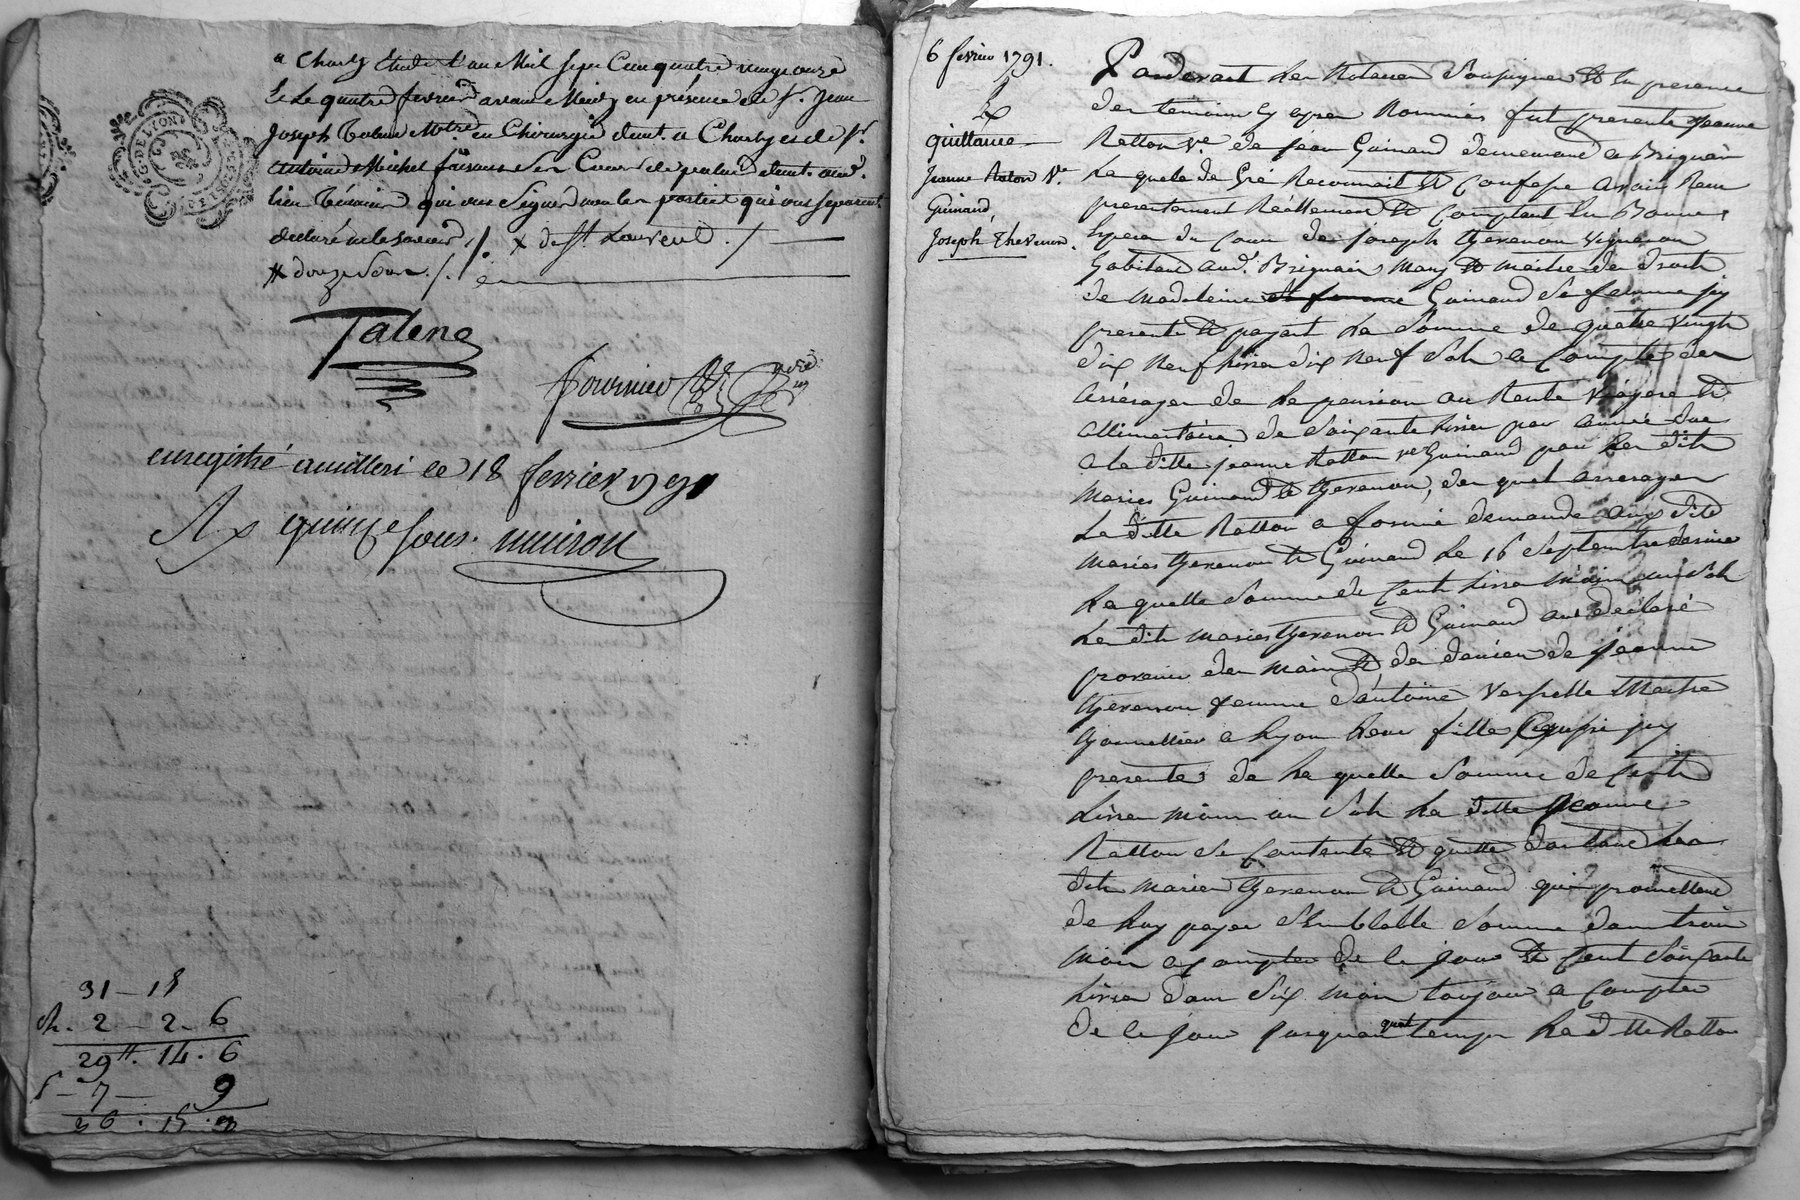 a Charly Etude L'an Mil sept Cent quatre vingt onze
& Le quatre fevrier avant Midy en présence de Sr. Jean
Joseph Maitre en Chirurgie demt. a Charly et de Sr.
Antoine Michel faiseur de demt. aud.
lieu Témoins qui ont Signé non les parties qui ont separement
declaré ne le Savoir ./. x de St Laurent ./.
# douze Sous ./.
G. DE LYON
Talene
fournier
enregistré a milleri le 18 fevrier 1791
Rx quinze sous. muiron
31 - 18
2 - 2 - 6
29 ₶. 14 . 6
7 - 9
36 . 15 . 3
6 fevrier 1791.
quittance
Jeanne Raton Ve.
Guinand,
Joseph Thevenon.
Pardevant Les Notaires Soussignes et en presence
des temoins Cy apres Nommés fut presente Jeanne
Ratton Ve. de jean Guinand demeurant a Brignais
La quelle de Gré Reconnait et Confesse avoir Recu
presentement Réellement et Comptant En Bonnes
Especes du Cours de joseph thevenon vigneron
habitant aud. Brignais mary et maitre des droits
de madeleine et femme Guinand Sa femme icy
presente et payant La Somme de quatre vingt
dix neuf livres dix neuf Sols a Compte des
arrérages de La pension ou Rente viagere et
allimentaire de Soixante livres par année due
a la ditte jeanne Ratton ve Guinand par Les dits
Maries Guinand et thevenon, des quels arrerages
La ditte Ratton a formé demande aux dits
Maries thevenon et Guinand Le 16 Septembre dernier
La quelle Somme de Cent livres moins un Sol
Les dits Maries thevenon et Guinand ont declaré
provenir des mains et des deniers de jeanne
thevenon femme d'antoine Verpelle Maitre
tonnellier a Lyon Leur fille Cy presente
presente, de La quelle Somme de Cent
Livres moins un Sol La ditte Jeanne
Ratton Se Contente et quitte d'autant Les
dits Maries thevenon et Guinand qui promettent
de Luy payer Semblable Somme dans trois
mois a Compter de Ce jour et Cent Soixante
Livres dans Six mois toujour a Compter
de Ce jour jusquau quel temps La ditte Ratton